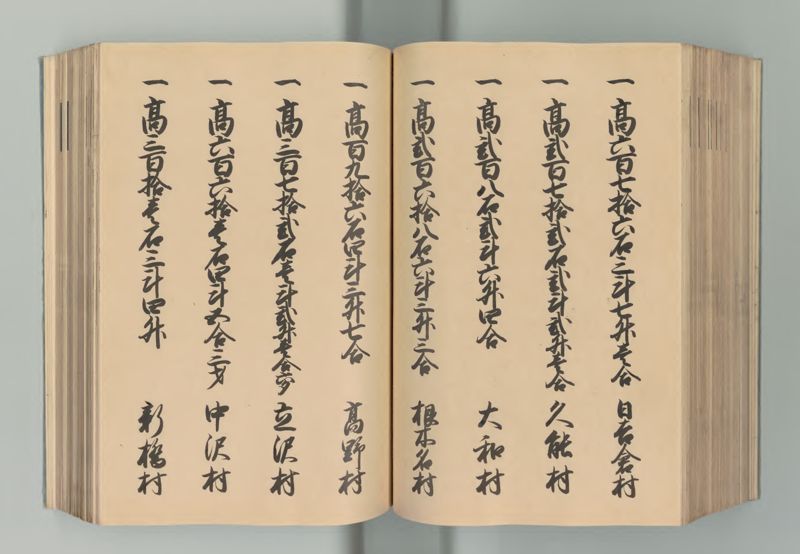 一 高六百七拾六石三斗七升壱合 日吉倉村
一 高弐百七拾弐石弐斗弐升壱合 久能村
一 高弐百八石弐斗六升四合 大和村
一 高弐百六拾八石六斗三升三合 根木名村
一 高百九拾六石四斗三升七合 高野村
一 高三百七拾弐石壱斗弐升壱合六夕 立沢村
一 高六百六拾壱石四斗五合三才 中沢村
一 高三百拾壱石三斗四升 新橋村